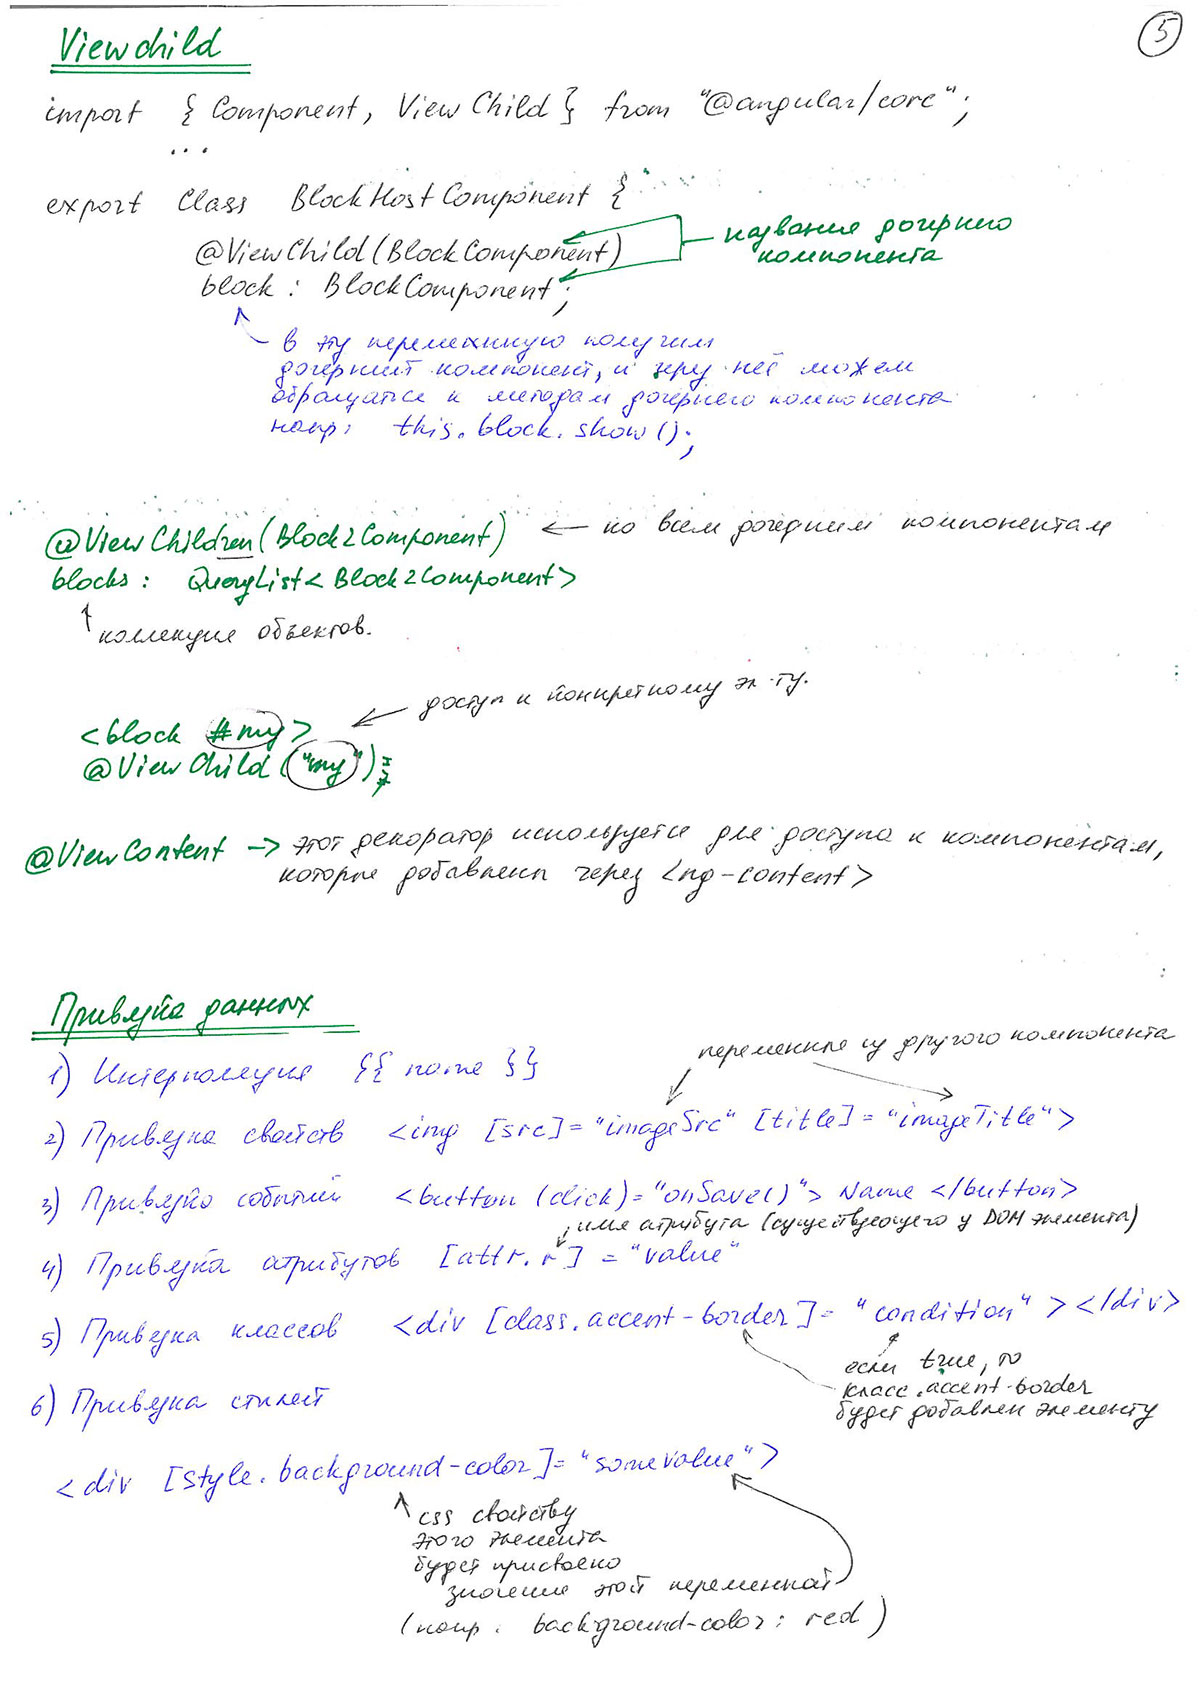 5
ViewChild
import { Component, ViewChild } from "@angular/core";
...
export class BlockHostComponent {
@ViewChild(BlockComponent)
block: BlockComponent;
название дочернего
компонента
в эту переменную получим
дочерний компонент, и через неё можем
обращаться к методам дочернего компонента
напр: this.block.show();
@ViewChildren(Block2Component)
ко всем дочерним компонентам
blocks: QueryList<Block2Component>
коллекция объектов.
доступ к конкретному эл-ту.
<block #my>
@ViewChild("my");
@ViewContent -> этот декоратор используется для доступа к компонентам,
которые добавлены через <ng-content>
Привязка данных
переменные из другого компонента
1) Интерполяция {{ name }}
2) Привязка свойств <img [src]="imageSrc" [title]="imageTitle">
3) Привязка событий <button (click)="onSave()"> Name </button>
имя атрибута (существующего у DOM элемента)
4) Привязка атрибутов [attr.r] = "value"
5) Привязка классов <div [class.accent-border]="condition"></div>
если true, то
класс .accent-border
будет добавлен элементу
6) Привязка стилей
<div [style.background-color]="someValue">
css свойству
этого элемента
будет присвоено
значение этой переменной
(напр. background-color: red)